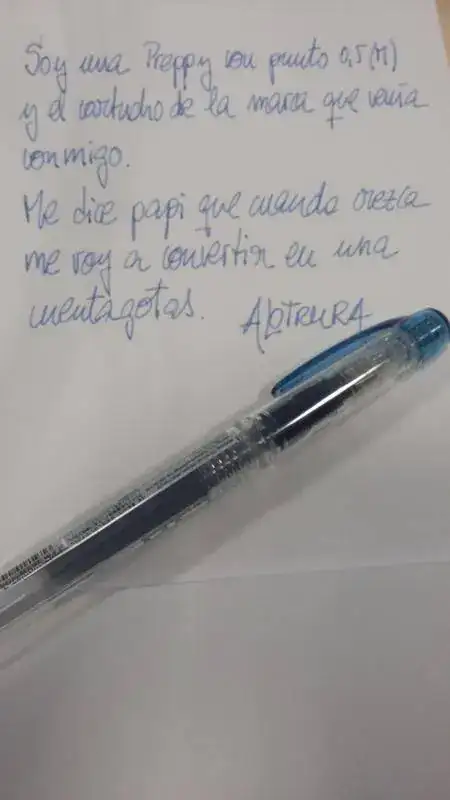 Soy una Preppy con punto 0,5 (M)
y el cartucho de la marca que venía
conmigo.
Me dice papi que cuando crezca
me voy a convertir en una
cuentagotas.